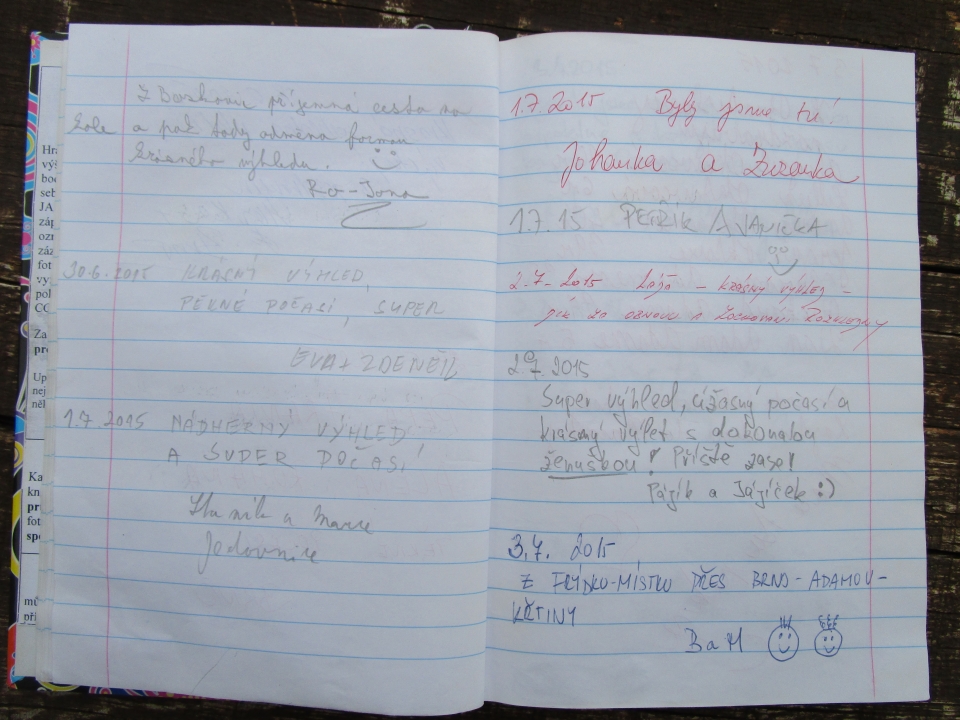 Z Boskovic příjemná cesta na
kole a pak tady odměna formou
krásného výhledu.
Ro-Jana
30.6.2015 KRÁSNÝ VÝHLED,
PĚKNÉ POČASÍ, SUPER
EVA + ZDENĚK
1.7.2015 NÁDHERNÝ VÝHLED
A SUPER POČASÍ
a
Jedovnice
1.7.2015 Byly jsme tu!
Johanka a Zuzanka
1.7.15 PETŘÍK A JANIČKA
2.7.2015 - krásný výhled -
dík za obnovu a zachování Rozhledny
2.7.2015
Super výhled, úžasný počasí a
krásný výlet s dokonalou
ženuškou! Příště zase!
Pájík a Jájíček :)
3.7. 2015
Z FRÝDKO-MÍSTKU PŘES BRNO-ADAMOV-
KŘTINY
B a M
Hra
výš
boc
seb
JA
záp
ozn
záz
fot
vy
pol
CC
Za
pro
Up
nej
něk
Ka
kn
pro
fot
spo
mů
při